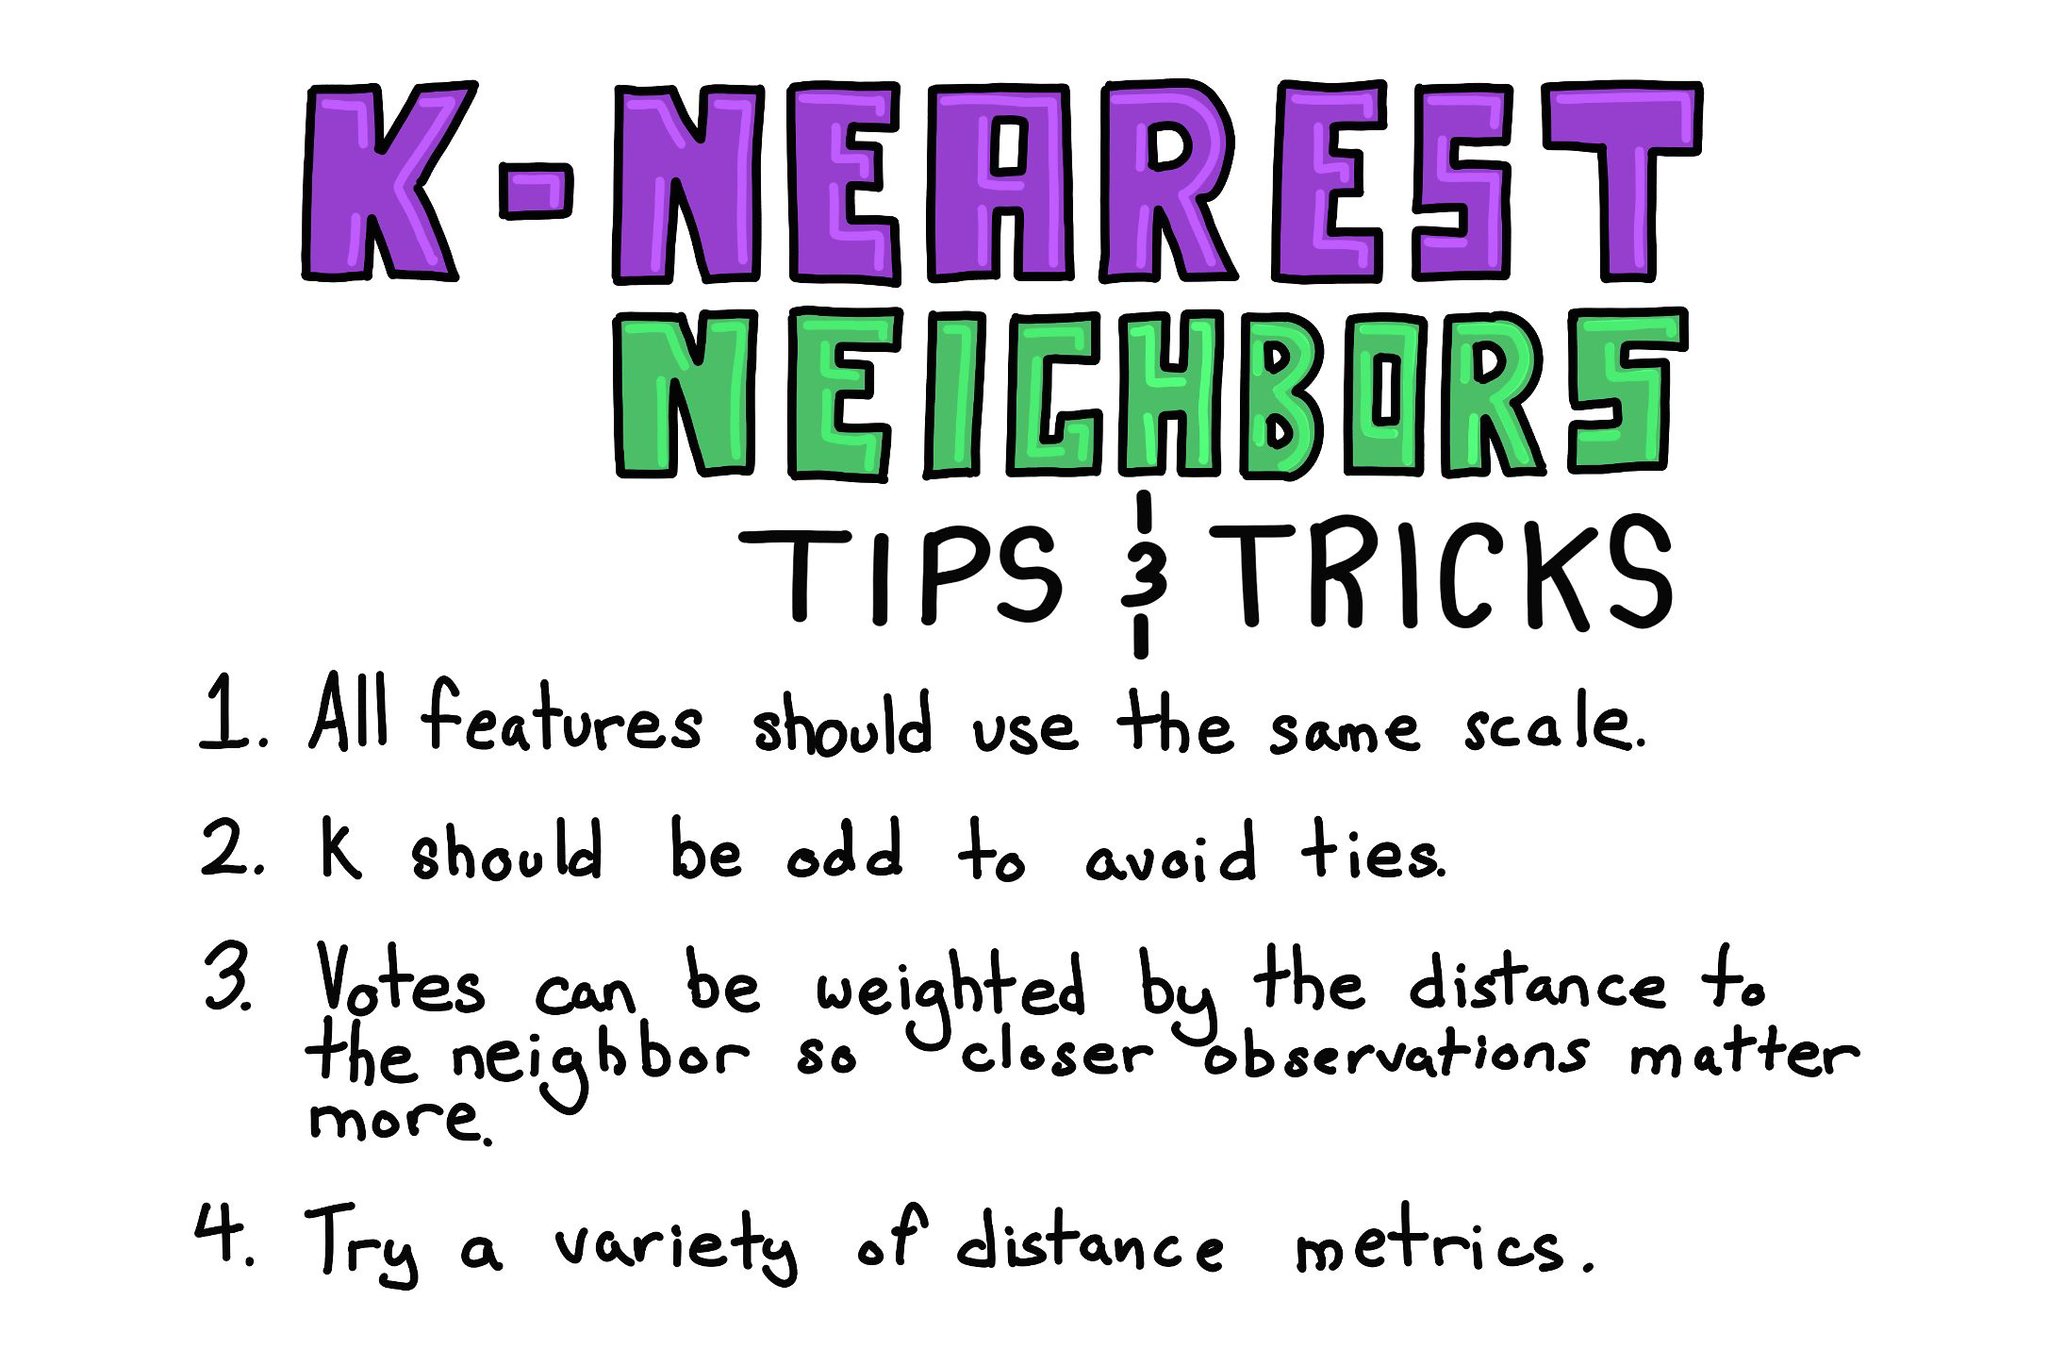 K-NEAREST
NEIGHBORS
TIPS & TRICKS
1. All features should use the same scale.
2. K should be odd to avoid ties.
3. Votes can be weighted by the distance to
the neighbor so closer observations matter
more.
4. Try a variety of distance metrics.